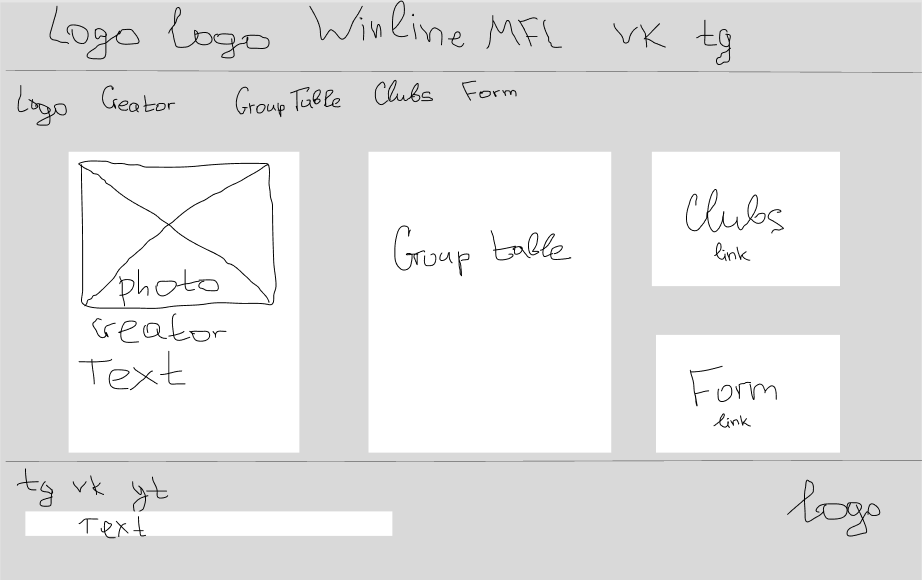 Logo Logo Winline MFL vk tg
Logo Creator Group Table Clubs Form
photo
creator
Text
Group table
Clubs
link
Form
link
tg vk yt
Text
Logo